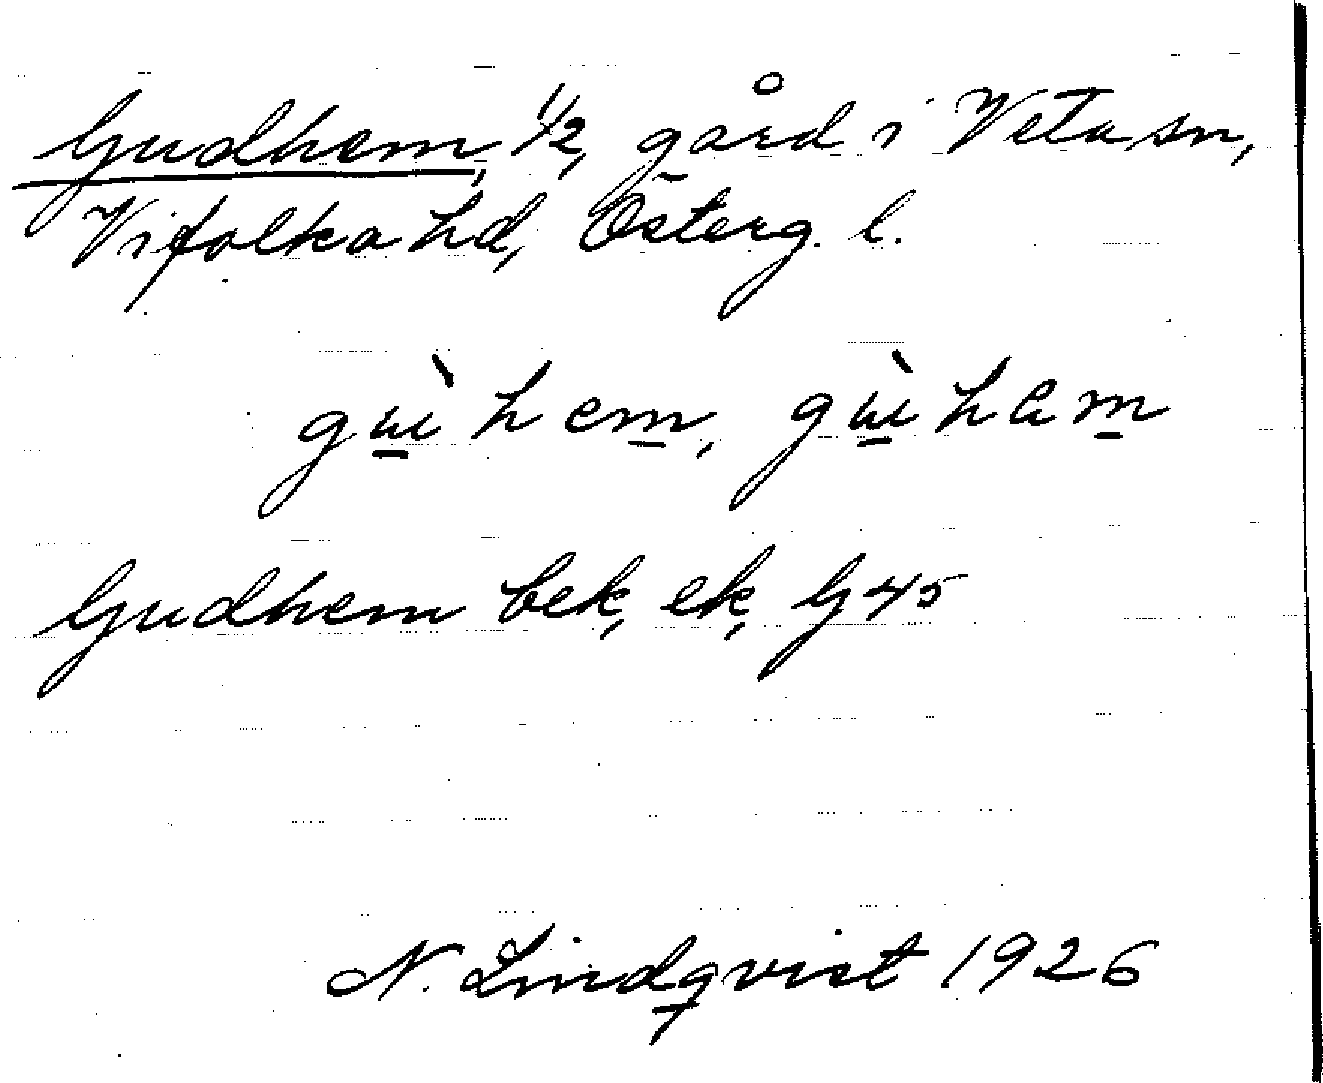 Gudhem, 1/2, gård i Veta sn,
Vifolka hd, Österg. l.
gɯ̀hem, gɯ̀ham
Gudhem bek, ek, G 45
N. Lindqvist 1926